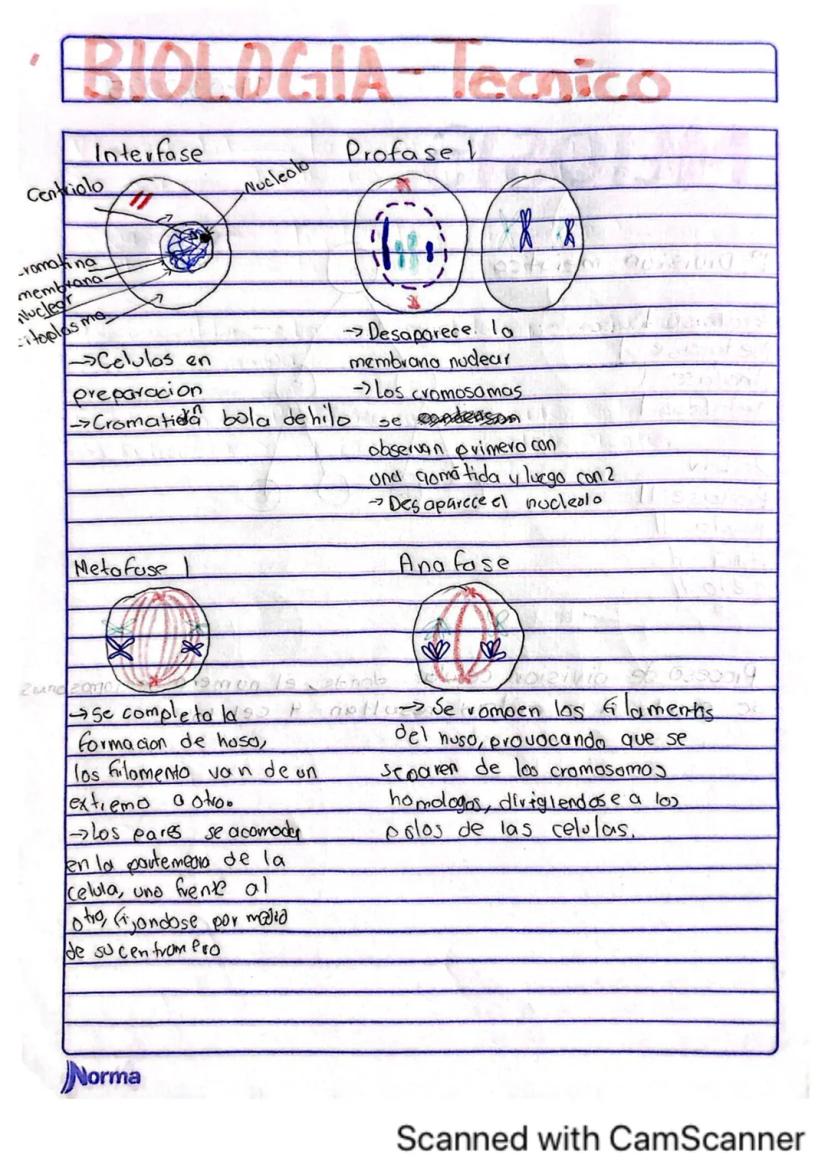 BIOLOGIA-Tecnico
Interfase
Centriolo
Nucleolo
romatina
membrana
nuclear
itoplasma
→Celulas en
preparacion
→Cromatida bola de hilo
Profase 1
→Desaparece la
membrana nuclear
→los cromosomas
se
observan primero con
una cromátida y luego con 2
→Desaparece el nucleolo
Metafase 1
→Se completa la
formacion de huso,
los filamento van de un
extremo a otro.
→Los pares se acomodan
en la parte media de la
celula, uno frente al
otro, fijandose por medio
de su centromero
Anafase
→ Se rompen los filamentos
del huso, provocando que se
separen de los cromosomas
homologos, dirigiendose a los
polos de las celulas.
Norma
Scanned with CamScanner